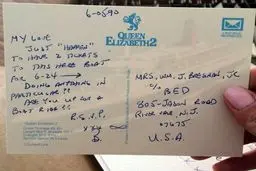 6-0590
QUEEN
ELIZABETH 2
MY LOVE
JUST "HAPPEN"
TO HAVE 2 TICKETS
TO THIS HERE BOAT
FOR 6-24
DOING ANYTHING IN
PARTICULAR??
ARE YOU UP FOR A
BOAT RIDE??
R.S.V.P.
XXX
B.
MRS. WM. J. BREGMAN, JR
C/O
BED
805- ROAD
RIVER VALE, N.J.
07675
U.S.A